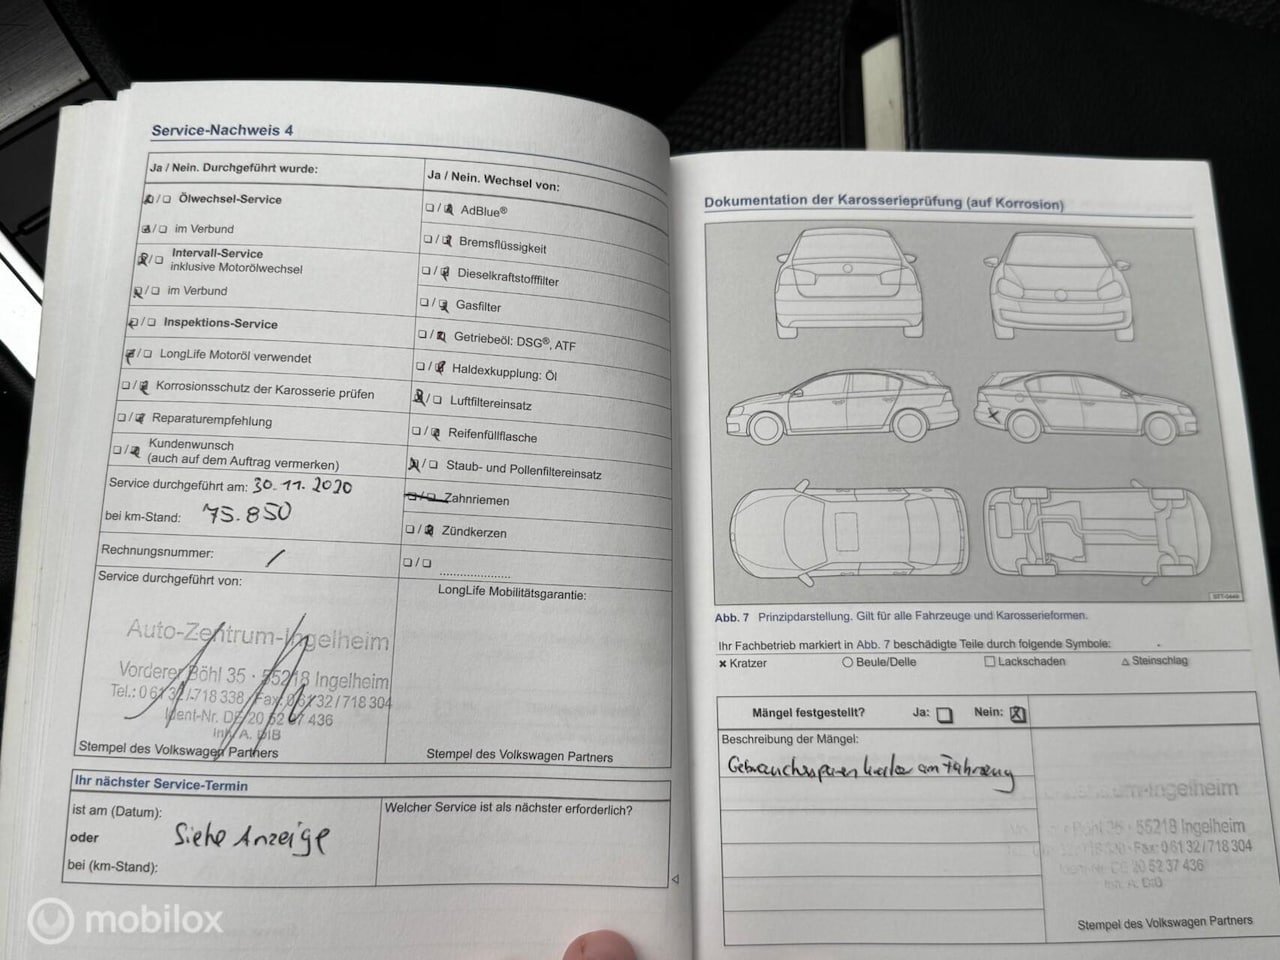 Service-Nachweis 4
Ja / Nein. Durchgeführt wurde:
Ölwechsel-Service
im Verbund
Intervall-Service
inklusive Motorölwechsel
im Verbund
Inspektions-Service
LongLife Motoröl verwendet
Korrosionsschutz der Karosserie prüfen
Reparaturempfehlung
Kundenwunsch
(auch auf dem Auftrag vermerken)
Service durchgeführt am: 30.11.2020
bei km-Stand: 75.850
Rechnungsnummer: /
Service durchgeführt von:
Auto-Zentrum-Ingelheim
Vorderer Böhl 35 · 55218 Ingelheim
Tel.: 0 61 32 / 718 338 Fax: 0 61 32 / 718 304
Ident-Nr. DE 20 52 37 436
Inh. A. DIB
Stempel des Volkswagen Partners
Ja / Nein. Wechsel von:
AdBlue®
Bremsflüssigkeit
Dieselkraftstofffilter
Gasfilter
Getriebeöl: DSG®, ATF
Haldexkupplung: Öl
Luftfiltereinsatz
Reifenfüllflasche
Staub- und Pollenfiltereinsatz
Zahnriemen
Zündkerzen
LongLife Mobilitätsgarantie:
Stempel des Volkswagen Partners
Ihr nächster Service-Termin
ist am (Datum):
oder
Siehe Anzeige
bei (km-Stand):
Welcher Service ist als nächster erforderlich?
Dokumentation der Karosserieprüfung (auf Korrosion)
Abb. 7 Prinzipdarstellung. Gilt für alle Fahrzeuge und Karosserieformen.
Ihr Fachbetrieb markiert in Abb. 7 beschädigte Teile durch folgende Symbole:
× Kratzer ○ Beule/Delle □ Lackschaden △ Steinschlag
Mängel festgestellt? Ja: □ Nein: ☒
Beschreibung der Mängel:
Gebrauchsspuren am Fahrzeug
-Ingelheim
Böhl 35 · 55218 Ingelheim
Fax: 0 61 32 / 718 304
Ident-Nr. DE 20 52 37 436
Inh. A. DIB
Stempel des Volkswagen Partners
mobilox